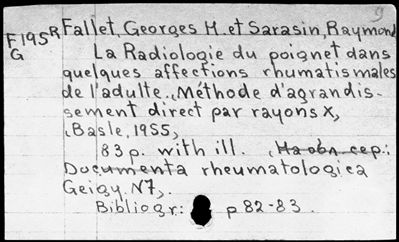 9
F195R Fallet, Georges H. et Sarasin, Raymond
G La Radiologie du poignet dans
quelques affections rhumatismales
de l'adulte. (Méthode d'agrandis-
sement direct par rayons X,
(Basle, 1955)
83 p. with ill. (На обл. сер.:
Documenta rheumatologica
Geigy. N7).
Bibliogr: p 82-83.